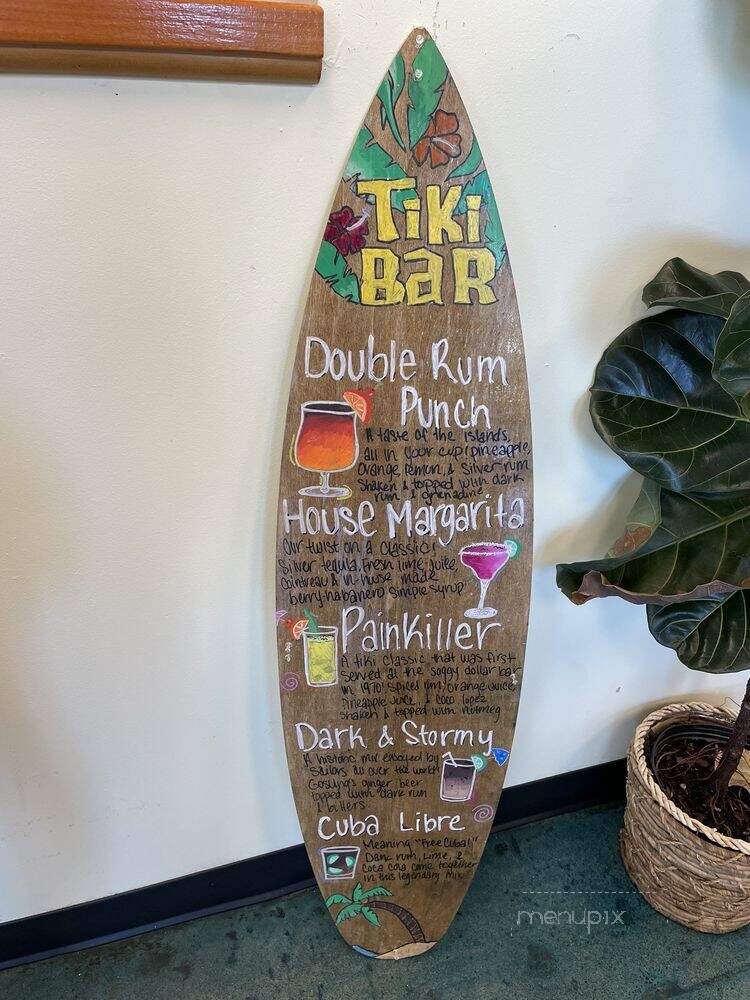 Tiki
Bar
Double Rum
Punch
A taste of the islands,
all in your cup! pineapple,
orange, lemon, & silver rum
shaken & topped with dark
rum & grenadine
House Margarita
Our twist on a classic!
Silver tequila, Fresh lime juice,
Cointreau & in-house made
berry-habanero simple syrup
Painkiller
A tiki classic that was first
served at the soggy dollar bar
in 1970! Spiced rum, orange juice,
Pineapple juice, & coco lopez
shaken & topped with nutmeg
Dark & Stormy
A historic mix enjoyed by
Sailors all over the world!
Goslings ginger beer
topped with dark rum
& bitters
Cuba Libre
Meaning "Free Cuba!"
Dark rum, Lime, &
Coca cola come together
in this legendary Mix
menupix